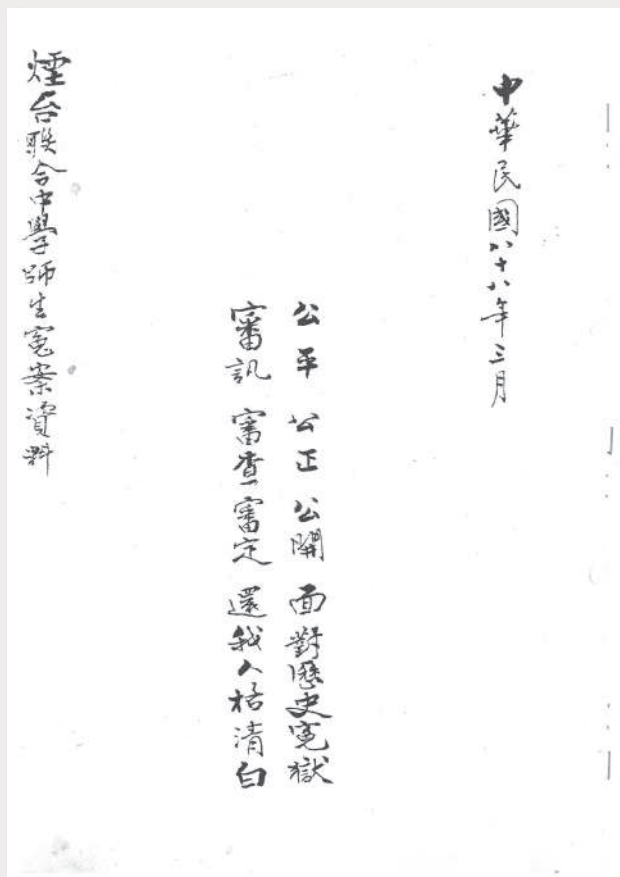 中華民國八十八年三月
公平 公正 公開 面對歷史冤獄
審訊 審查 審定 還我人格清白
煙台聯合中學師生冤案資料